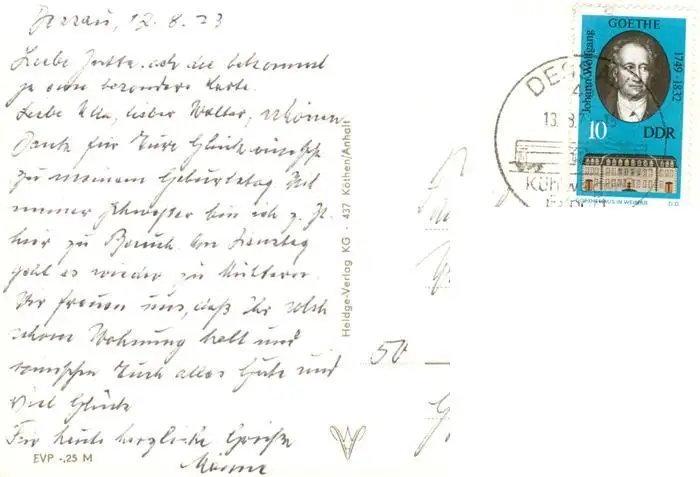 Dessau, 12.8.73
Liebe Jutta, ach die bekommst
ja eine besondere Karte.
Liebe Ulla, lieber Walter, schönen
Dank für Eure Glückwünsche
zu meinem Geburtstag. Mit
meiner Schwester bin ich z. Zt.
hier zu Besuch. Am Dienstag
geht es wieder zu Muttern.
Wir freuen uns, daß Ihr solch
schöne Wohnung habt und
wünschen Euch alles Gute und
viel Glück
Für heute herzliche Grüße
EVP -,25 M
Heldge-Verlag KG - 437 Köthen/Anhalt
50
DES
13. 8.7
Kühl
Johann Wolfgang
GOETHE
1749 · 1832
10
DDR
GOETHEHAUS IN WEIMAR